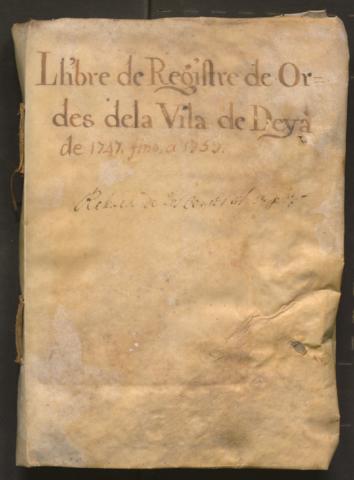 Llibre de Registre de Or=
des dela Vila de Deyà
de 1747. fins. a 1759.
de